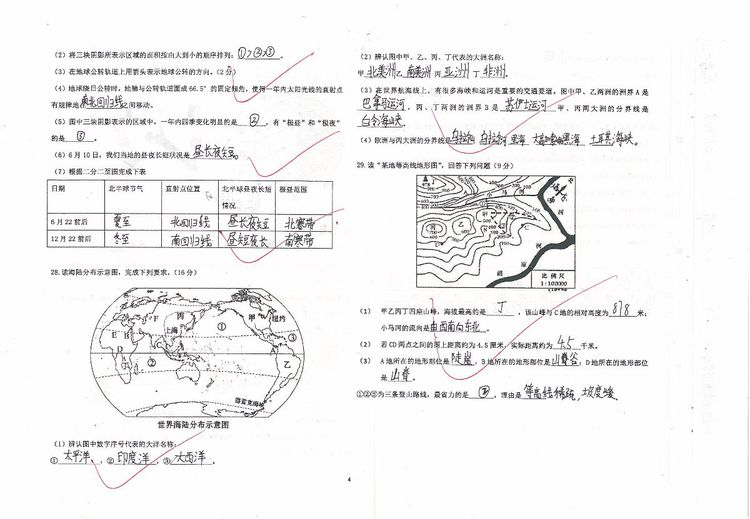 (2) 将三块阴影所表示区域的面积按由大到小的顺序排列:①>②>③。
(3) 在地球公转轨道上用箭头表示地球公转的方向。(2分)
(4) 地球绕日公转时,地轴与公转轨道面成66.5°的固定倾角,使得一年内太阳光线的直射点
有规律地南北回归线之间移动。
(5) 图中三块阴影表示的区域中,一年内四季变化明显的是 ②,有“极昼”和“极夜”
的是 ③。
(6) 6月10日,我们当地的昼夜长短状况是 昼长夜短。
(7) 根据二分二至图完成下表
日期 北半球节气 直射点位置 北半球昼夜长短情况 极昼范围
6月22前后 夏至 北回归线 昼长夜短 北寒带
12月22前后 冬至 南回归线 昼短夜长 南寒带
28.读海陆分布示意图,完成下列要求。(16分)
丙 甲 纽约
上海 ①
②
乙
世界海陆分布示意图
(1) 辨认图中数字序号代表的大洋名称:
① 太平洋,② 印度洋,③ 大西洋。
(2) 辨认图中甲、乙、丙、丁代表的大洲名称:
甲 北美洲 乙 南美洲 丙 亚洲 丁 非洲。
(3) 在世界航海线上,有很多海峡和运河是重要的交通要道,图中甲、乙两洲的洲界A是
巴拿马运河,丙、丁两洲的洲界B是 苏伊士运河 甲、丙两大洲的分界线是
白令海峡。
(4) 欧洲与丙大洲的分界线是 乌拉山 乌拉尔河 里海 大高加索山 黑海 土耳其海峡。
29.读“某地等高线地形图”,回答下列问题(9分)
比例尺
1:100000
(1) 甲乙丙丁四座山峰,海拔最高的是 丁,该山峰与C地的相对高度为 878 米;
小马河的流向是由西南向东北。
(2) 若CD两点之间的图上距离约为4.5厘米,实际距离约为 4.5 千米。
(3) A地所在的地形部位是 陡崖,B地所在的地形部位是 山谷;D地所在的地形部位
是 山脊。
①②③为三条登山路线,最省力的是 ②,理由是 等高线稀疏,坡度缓。
4